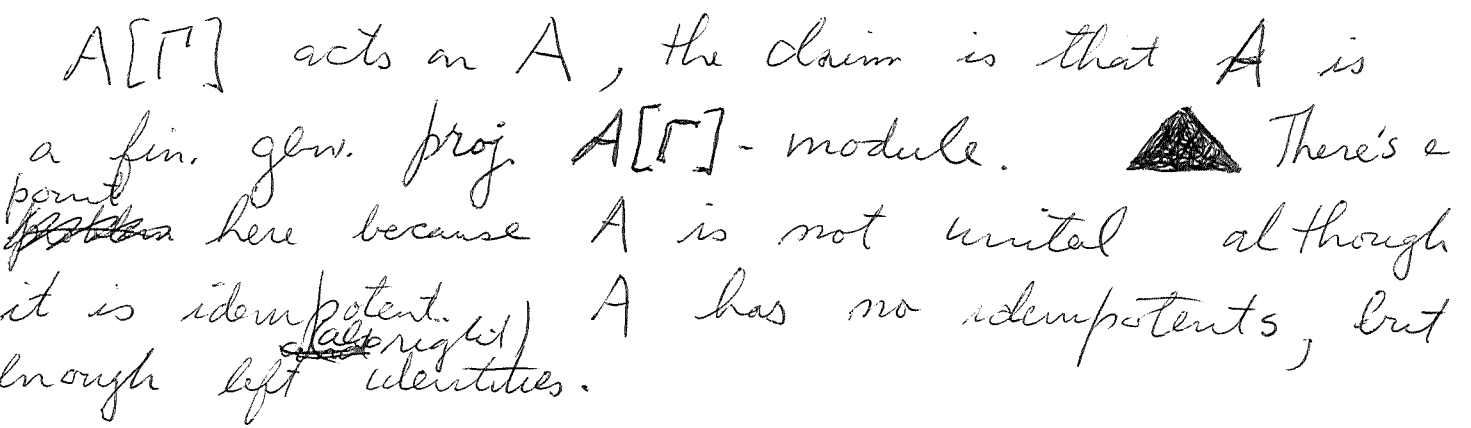 A[Γ] acts on A, the claim is that A is
a fin. gen. proj. A[Γ]-module. There's a
point here because A is not unital although
it is idempotent. A has no idempotents, but
enough left (also right) identities.